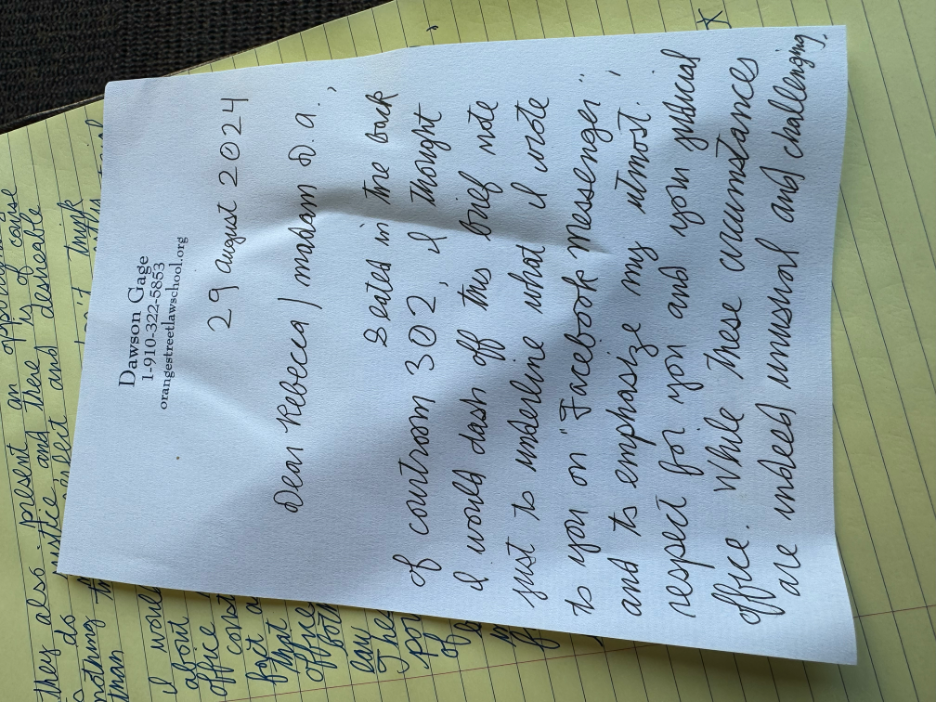 Dawson Gage
1-910-322-5853
orangestreetlawschool.org
29 august 2024
Dear Rebecca / madam D.a.,
Seated in the back
of courtroom 302, I thought
I would dash off this brief note
just to underline what I wrote
to you on "Facebook messenger",
and to emphasize my utmost
respect for you and your judicial
office. While these circumstances
are indeed unusual and challenging,
they also present an
do justice and there is of course
nothing perfect and desireable
than
I would
about
office
const
fact a
that
office
both
lay
The
po
of